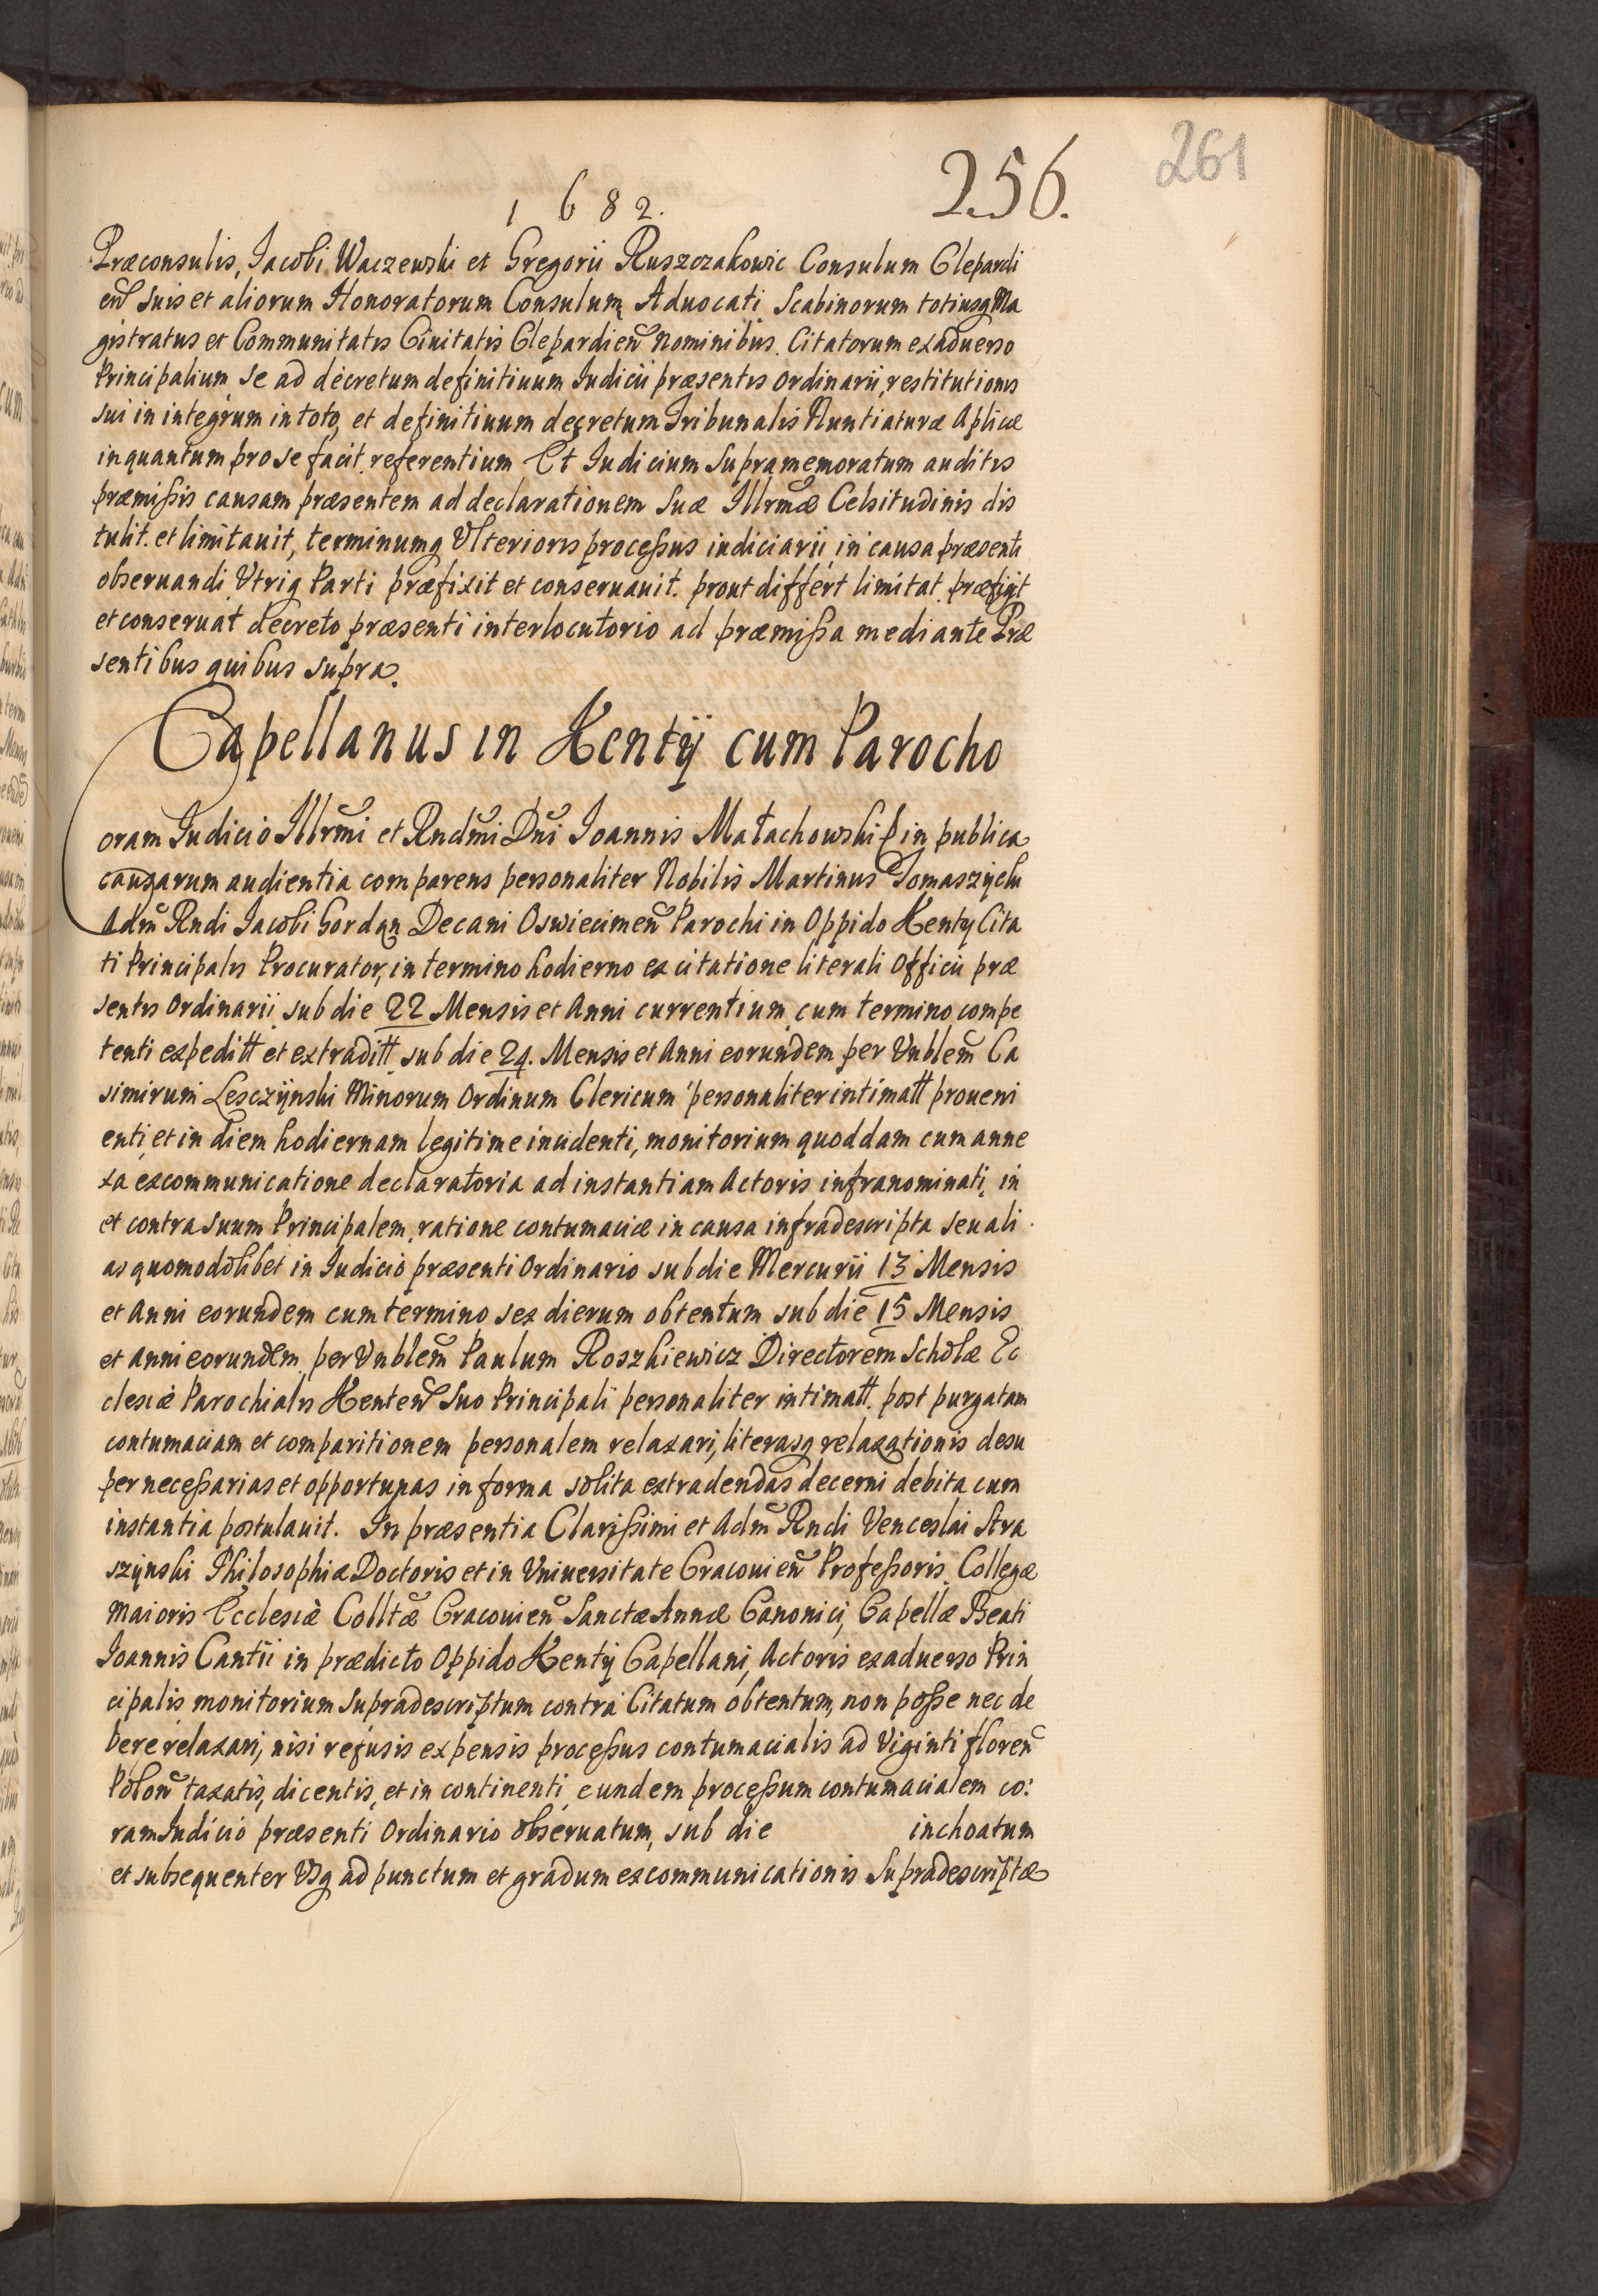 261
256.
1 6 8 2.
Præconsulis, Jacobi Waczewski et Gregorii Ruszczakowic Consulum Clepardi
eñ suis et aliorum Honoratorum Consulum, Aduocati Scabinorum totiusq Ma
gistratus et Communitatis Ciuitatis Clepardieñ nominibus. Citatorum exaduerso
Principalium, se ad decretum definitiuum Judicii præsentis ordinarii, restitutionis
sui in integrum in toto, et definitiuum decretum Tribunalis Nuntiaturæ Aplicæ
inquantum pro se facit. referentium Et Judicium Supramemoratum auditis
præmißis causam præsentem ad declarationem Suæ Illrmæ Celsitudinis dis
tulit. et limitauit, terminumq Vlterioris proceßus iudiciarii, in causa præsenti
obseruandi Vtriq Parti præfixit et conseruauit. prout differt limitat. præfigit
et conseruat decreto præsenti interlocutorio ad præmißa mediante Præ
sentibus quibus supra.
Capellanus in Kentÿ cum Parocho
oram Judicio Illrmi et Rndmi Dni Joannis Małachowski in publica
causarum audientia comparens personaliter Nobilis Martinus Tomaszÿcki
Adm Rndi Jacobi Gordan Decani Oswiecimeñ Parochi in Oppido Kenty Cita
ti Principalis Procurator, in termino hodierno ex citatione literali Officii præ
sentis Ordinarii, sub die 22 Mensis et Anni currentium, cum termino compe
tenti expeditt et extraditt. sub die 24. Mensis et Anni eorundem per Vnblem Ca
simirum Lesczÿnski Minorum Ordinum Clericum personaliter intimatt proueni
enti, et in diem hodiernam legitime incidenti, monitorium quoddam cum anne
xa excommunicatione declaratoria ad instantiam Actoris infranominati, in
et contra suum Principalem, ratione contumaciæ in causa infradescripta seu ali
as quomodolibet in Judicio præsenti Ordinario sub die Mercurii 13 Mensis
et Anni eorundem cum termino sex dierum obtentum sub die 15 Mensis
et Anni eorundem per Vnblem Paulum Roszkiewicz Directorem Scholæ Ec
clesiæ Parochialis Kenteñ Suo Principali personaliter intimatt. post purgatam
contumaciam et comparitionem personalem relaxari, literasq relaxationis desu
per neceßarias et opportunas in forma solita extradendas decerni debita cum
instantia postulauit. In præsentia Clarißimi et Adm Rndi Venceslai Stra
szÿnski Philosophiæ Doctoris et in Vniuersitate Cracouieñ Profeßoris, Collegæ
Maioris Ecclesiæ Colltæ Cracouieñ Sanctæ Annæ Canonici, Capellæ Beati
Joannis Cantii in prædicto Oppido Kentÿ Capellani, Actoris exaduerso Prin
cipalis monitorium supradescriptum contra Citatum obtentum, non poße nec de
bere relaxari, nisi refusis expensis proceßus contumacialis ad Viginti floreñ
Poloñ taxatis, dicentis, et in continenti, eundem proceßum contumacialem co:
ram Judicio præsenti Ordinario obseruatum, sub die inchoatum
et subsequenter Vsq ad punctum et gradum excommunicationis Supradescriptæ